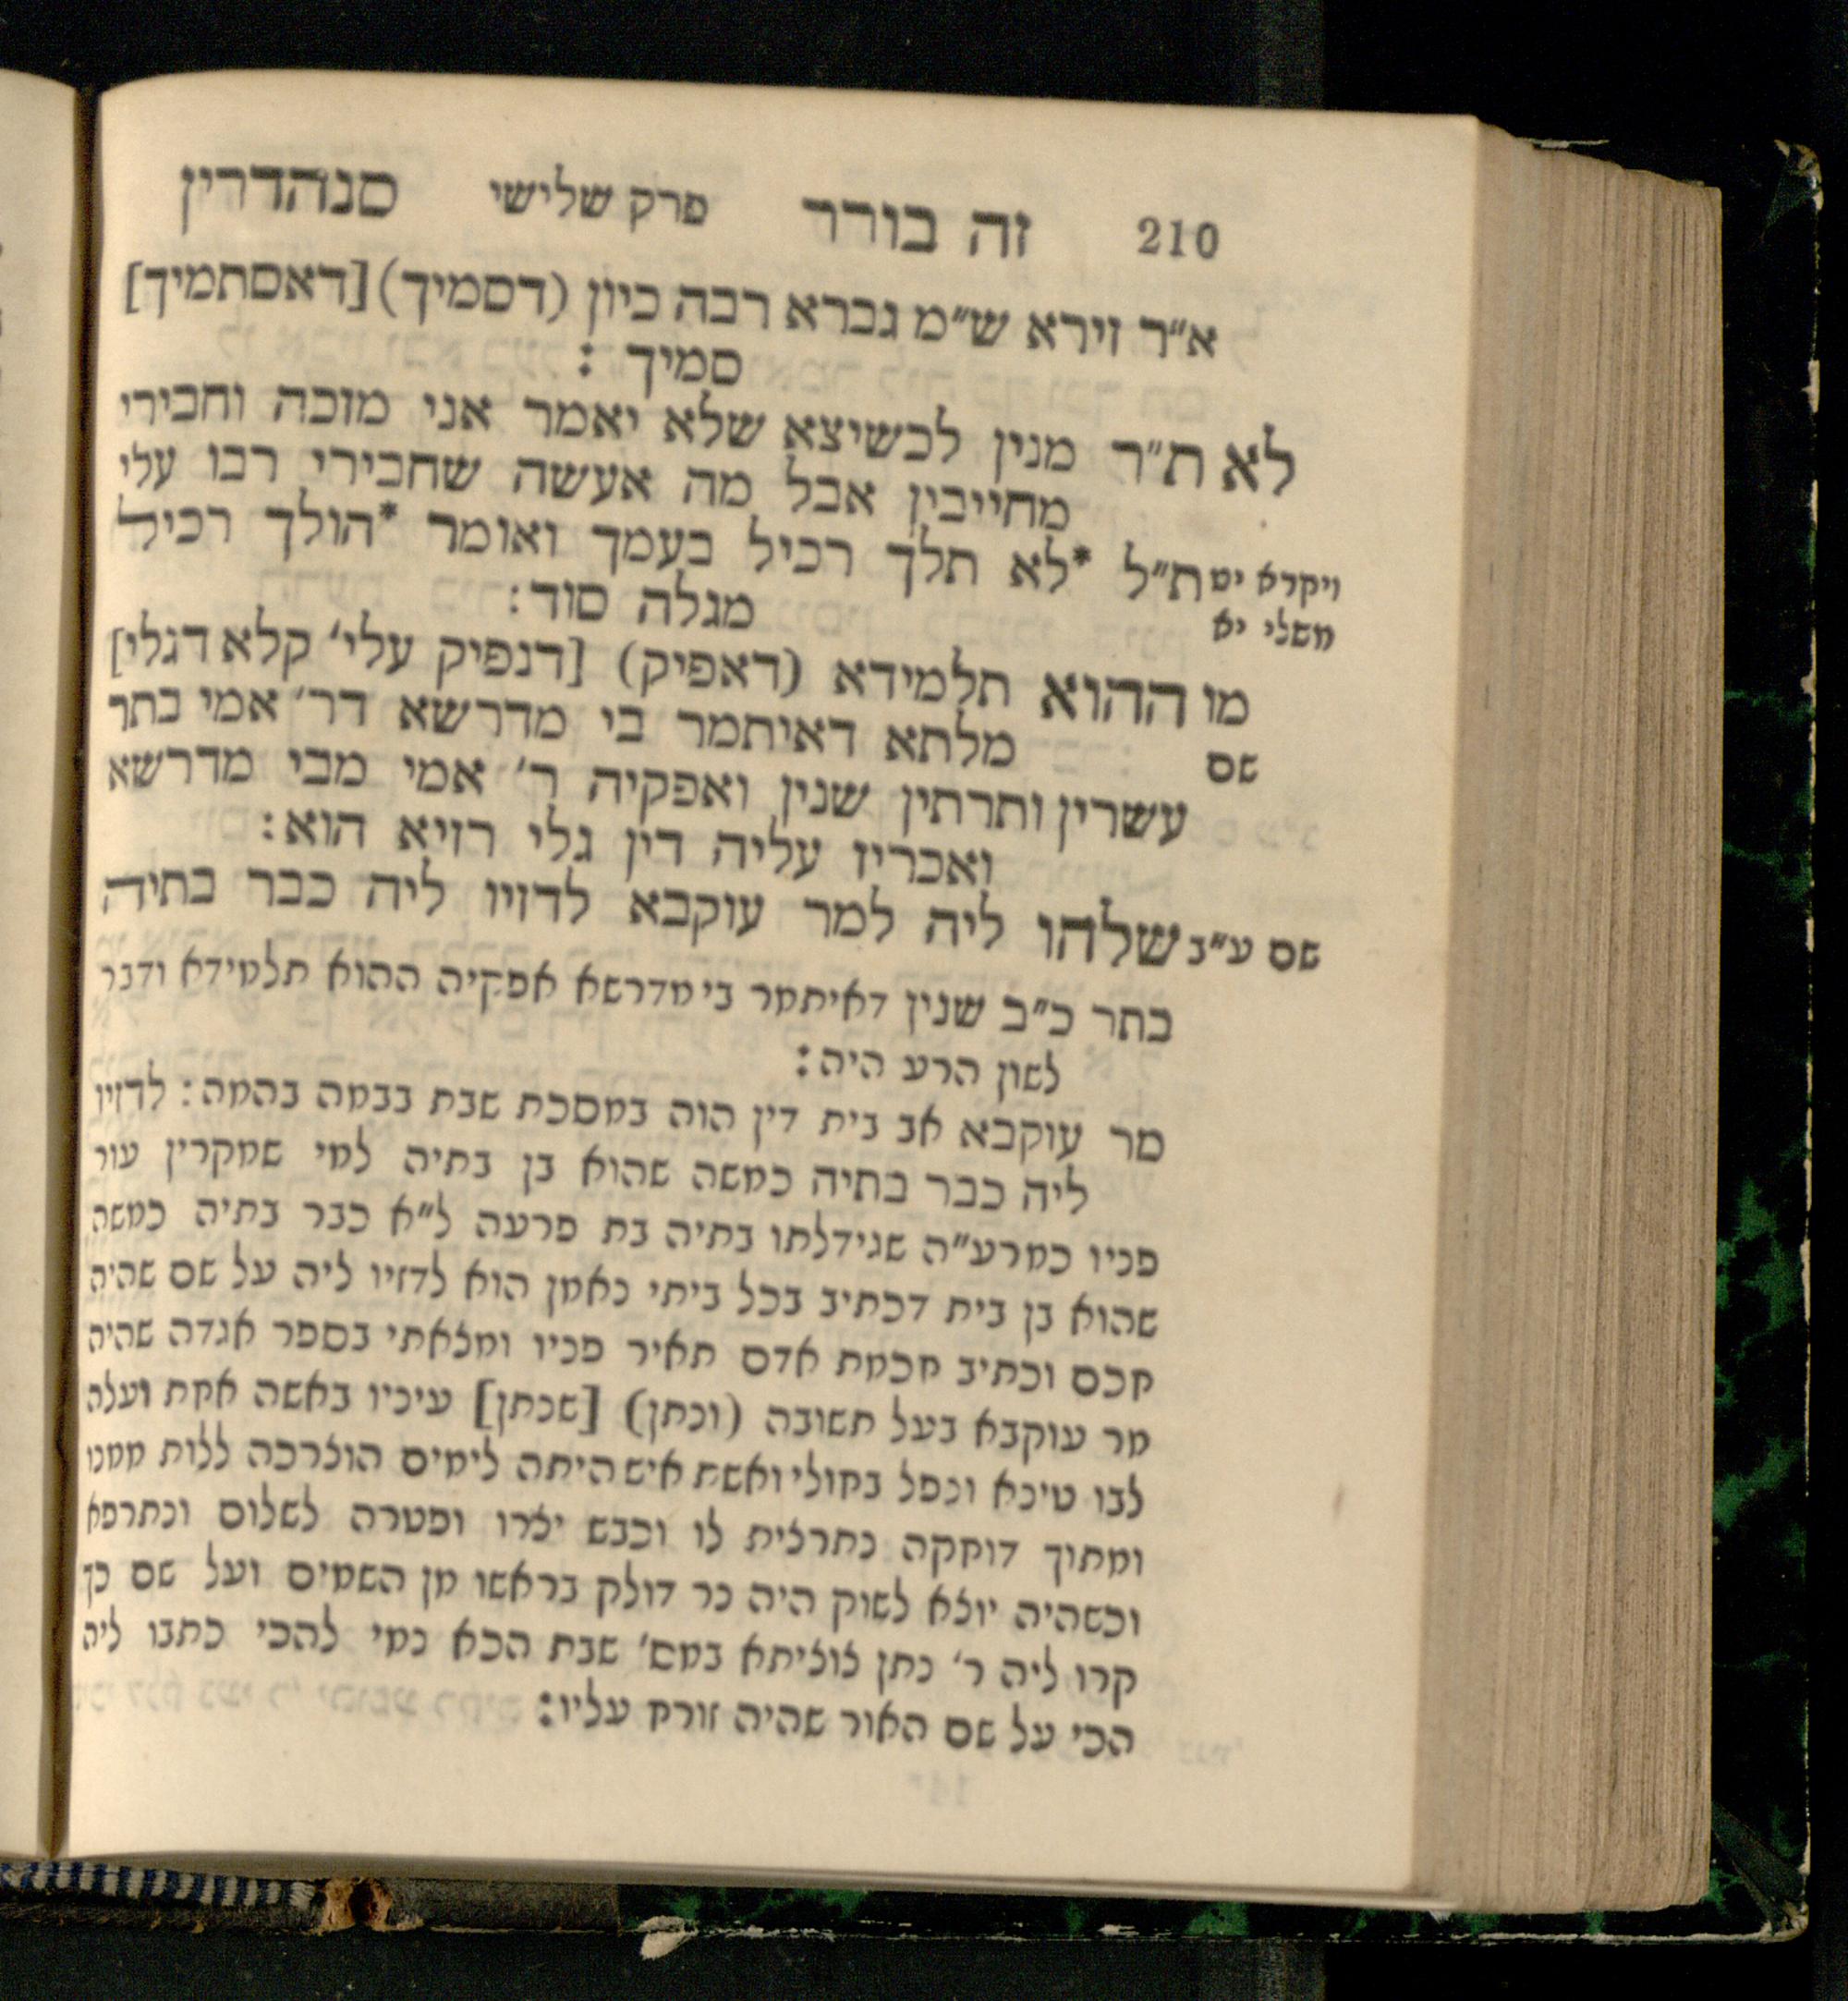 210 זה בורר פרק שלישי סנהדרין
א״ר זירא ש״מ גברא רבה כיון (דסמיך) [דאסתמיך]
סמיך :
לא ת״ר מנין לכשיצא שלא יאמר אני מזכה וחבירי
מחייבין אבל מה אעשה שחבירי רבו עלי
ויקרא יט ת״ל *לא תלך רכיל בעמך ואומר *הולך רכיל
משלי יא מגלה סוד:
מו ההוא תלמידא (דאפיק) [דנפיק עלי׳ קלא דגלי]
שם מלתא דאיתמר בי מדרשא דר׳ אמי בתר
עשרין ותרתין שנין ואפקיה ר׳ אמי מבי מדרשא
ואכריז עליה דין גלי רזיא הוא:
שם ע״ב שלהו ליה למר עוקבא לדזיו ליה כבר בתיה
בתר כ״ב שנין דאיתמר בי מדרשא אפקיה ההוא תלמידא ודבר
לשון הרע היה:
מר עוקבא אב בית דין הוה במסכת שבת בבמה בהמה: לדזיו
ליה כבר בתיה כמשה שהוא בן בתיה למי שמקרין עור
פניו כמרע״ה שגידלתו בתיה בת פרעה ל״א כבר בתיה כמשה
שהוא בן בית דכתיב בכל ביתי נאמן הוא לדזיו ליה על שם שהיה
חכם וכתיב חכמת אדם תאיר פניו ומצאתי בספר אגדה שהיה
מר עוקבא בעל תשובה (ונתן) [שנתן] עיניו באשה אחת ועלה
לבו טינא ונפל בחולי ואשת איש היתה לימים הוצרכה ללות ממנו
ומתוך דוחקה נתרצית לו וכבש יצרו ופטרה לשלום ונתרפא
וכשהיה יוצא לשוק היה נר דולק בראשו מן השמים ועל שם כך
קרו ליה ר׳ נתן צוציתא במס׳ שבת הכא נמי להכי כתבו ליה
הכי על שם האור שהיה זורח עליו: